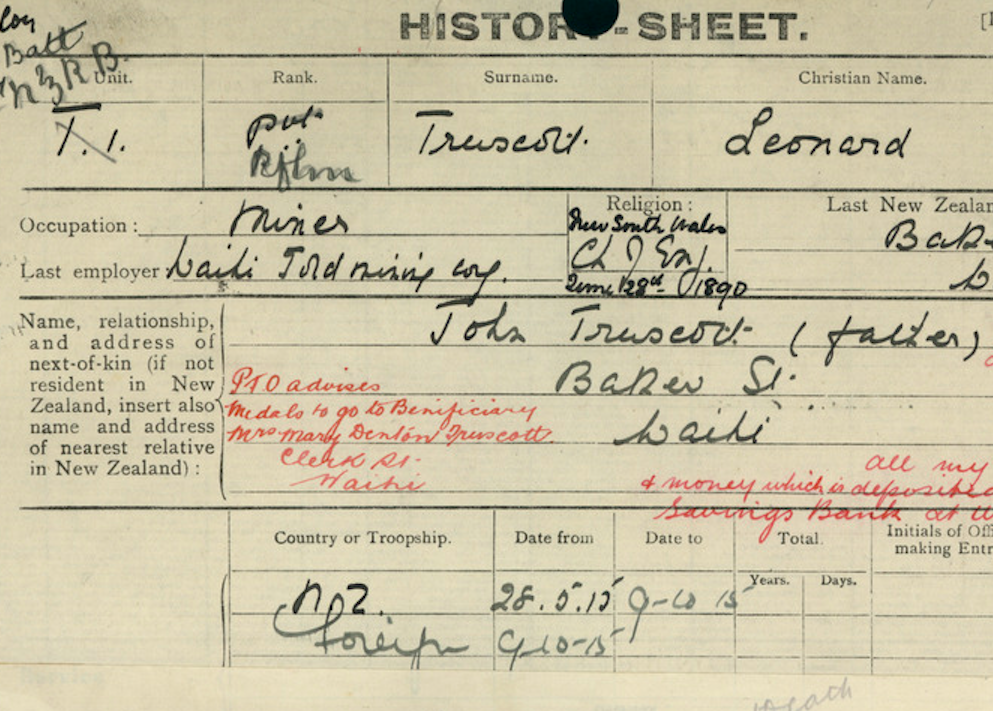 HISTORY-SHEET.
Batt
N Z R B.
Unit. Rank. Surname. Christian Name.
1. 1. pvt. Truscott. Leonard
Rflmn
Occupation: Miner
Religion:
New South Wales
Ch of Eng.
June 28th 1890
Last New Zealan
Bake
W
Last employer: Waihi Gold mining coy.
Name, relationship,
and address of
next-of-kin (if not
resident in New
Zealand, insert also
name and address
of nearest relative
in New Zealand):
John Truscott (father)
Baker St.
Waihi
P.T.O advises
Medals to go to Benificiary
Mrs Mary Denton Truscott
Clerk St.
Waihi
all my
& money which is deposited
Savings Bank at W
Country or Troopship. Date from Date to Total. Initials of Offi
making Entr
Years. Days.
N.Z. 28.5.15 9-10 15
Foreign 9-10-15
Death